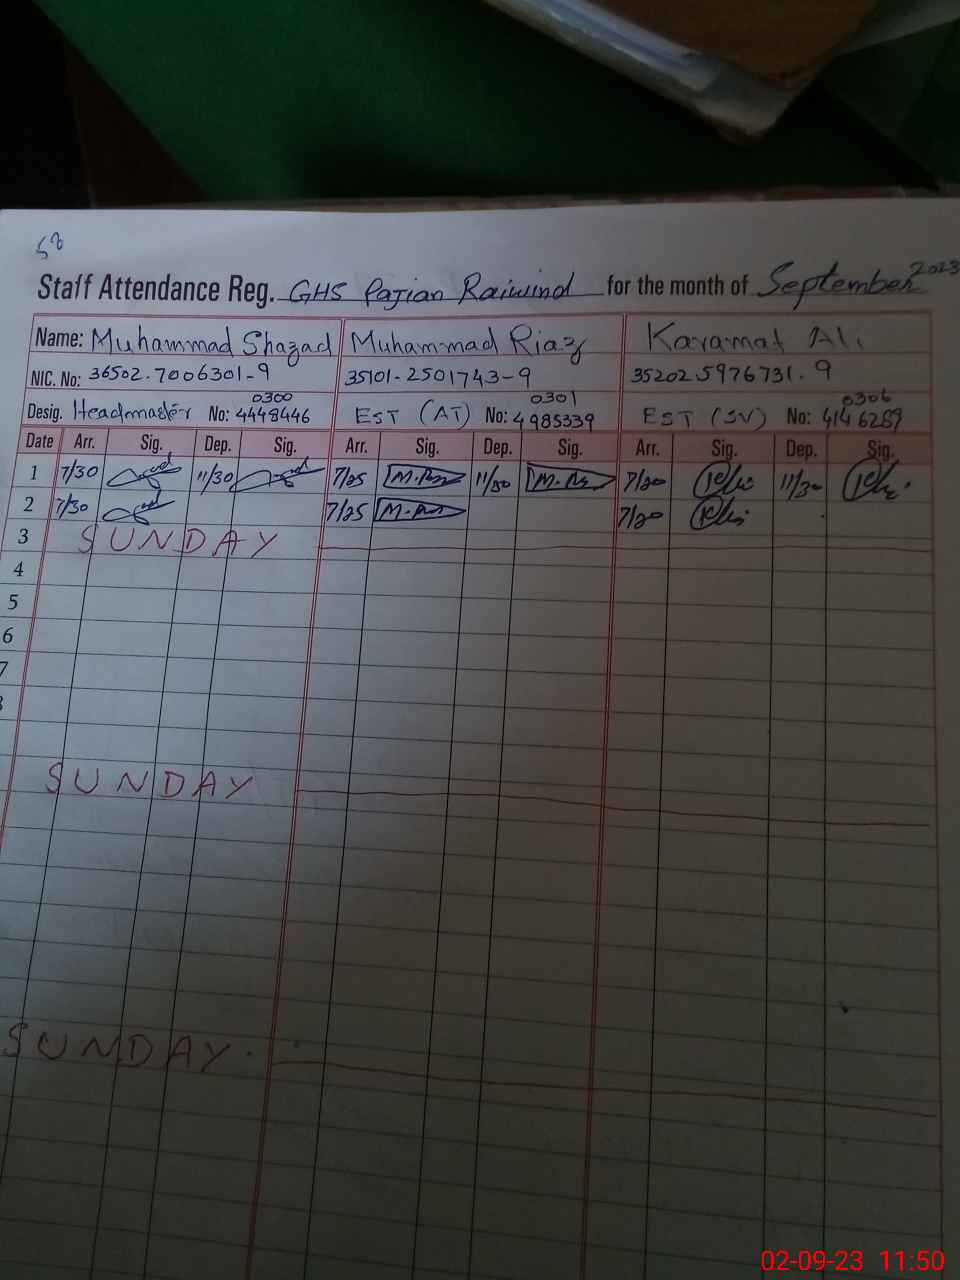 58
Staff Attendance Reg. GHS Pajian Raiwind for the month of September 2023
Name: Muhammad Shazad Muhammad Riaz Karamat Ali
NIC. No: 36502.7006301-9 35101-2501743-9 35202 5976731.9
Desig. Headmaster No: 0300 4448446 EST (AT) No: 0301 4985339 EST (SV) No: 0306 4146289
Date Arr. Sig. Dep. Sig. Arr. Sig. Dep. Sig. Arr. Sig. Dep. Sig.
1 7/30 11/30 7/25 11/30 7/20 11/30
2 7/30 7/25 7/20
3 SUNDAY
4
5
6
7
SUNDAY
SUNDAY
02-09-23 11:50